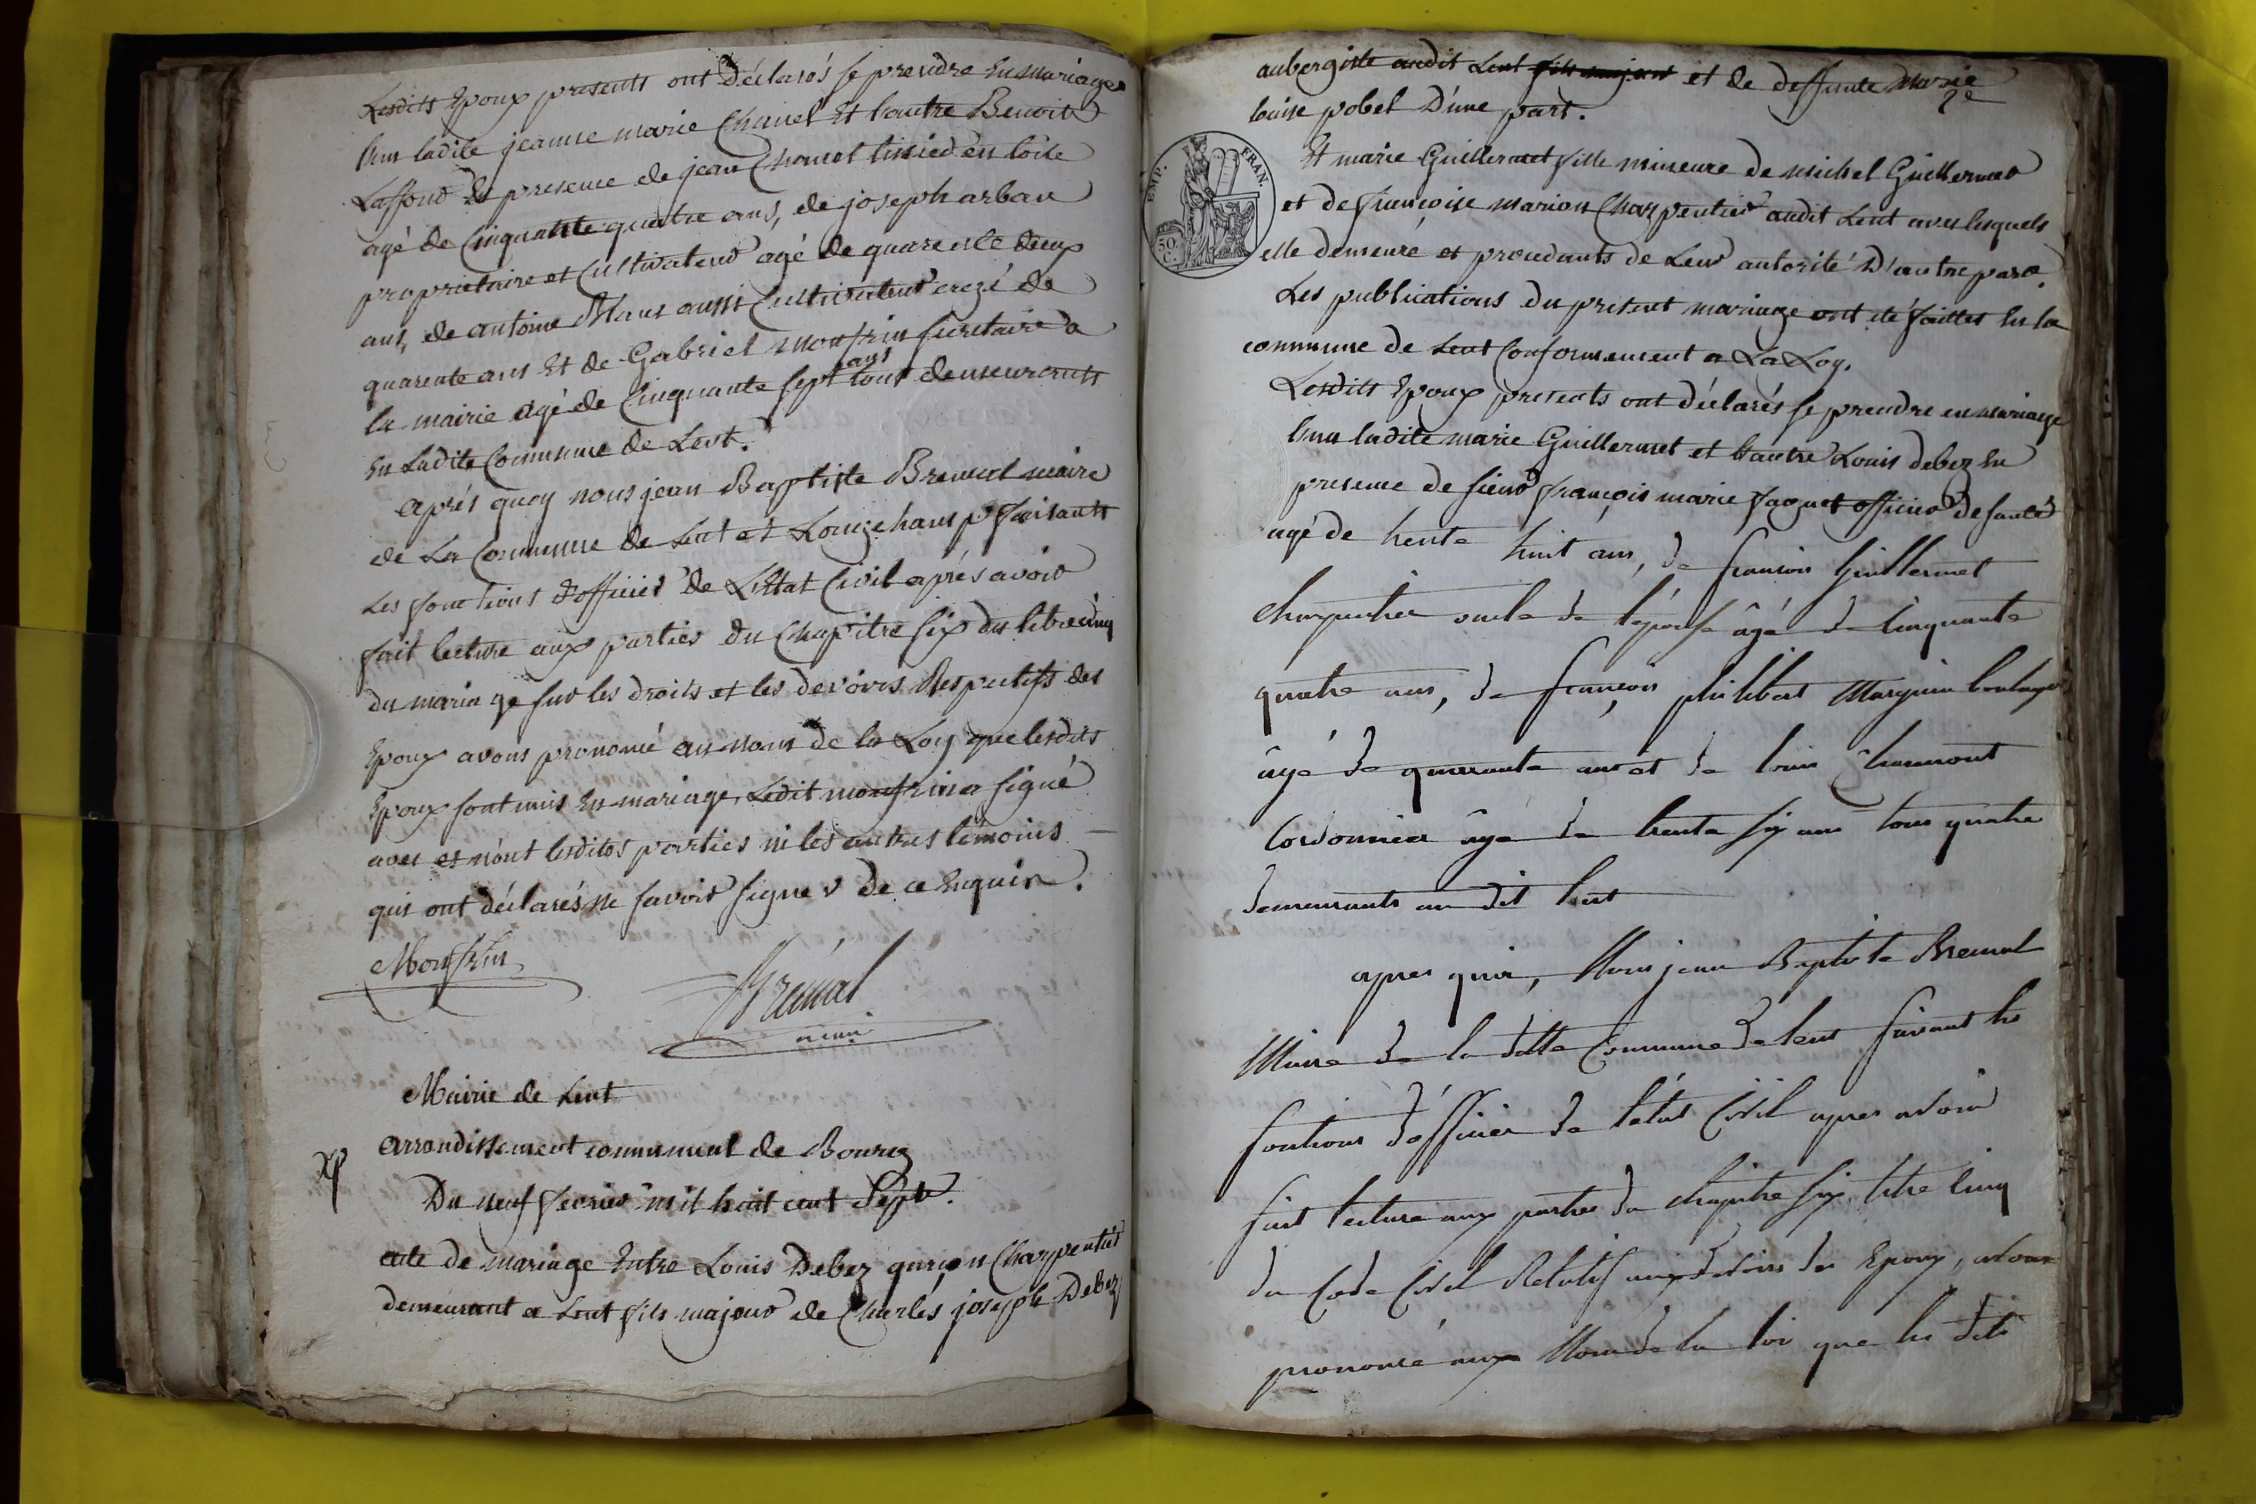 Lesdits Epoux presents ont déclarés se prendre En mariage
l'un ladite jeanne marie Chanel Et l'autre Benoit
Laffond En presence de jean Chanel tissier en toile
agé de Cinquante quatre ans, de joseph arban
proprietaire et Cultivateur agé de quarente deux
ans, de antoine Blanc aussi Cultivateur agé de
quarente ans Et de Gabriel Monfrin secretaire a
la mairie agé de Cinquante sept ans tous demeurants
En Ladite Commune de Lent.
après quoy nous jean Baptiste Brenal maire
de La Commune de Lent et Longchamp faisants
Les fonctions d'officier de L'Etat Civil après avoir
fait lecture aux parties du Chapitre six du titre cinq
du mariage sur les droits et les devoirs Respectifs des
Epoux avons prononcé au nom de la Loy que lesdits
Epoux sont unis En mariage, Ledit monfrin a signé
avec et n'ont lesdites parties ni les autres temoins
qui ont déclarés ne savoir signer de ce Enquis.
Monfrin
Brenal
maire
Mairie de Lent
arrondissement communal de Bourg
Du neuf fevrier mil huit cent Sept.
acte de mariage Entre Louis Debez garçon Charpentier
demeurant a Lent fils majeur de Charles joseph Debez
aubergiste audit Lent fils majeur et de deffunte marie
louise pobel D'une part.
EMP. FRAN.
50. C.
Et marie Guillermet fille mineure de michel Guillermet
et de françoise marion Charpentier audit Lent avec lesquels
elle demeure et procedants de Leur autorité D'autre part.
Les publications du present mariage ont été faittes En la
commune de Lent Conformement a La Loy.
Lesdits Epoux presents ont déclarés se prendre en mariage
l'un ladite marie Guillermet et l'autre Louis debez En
presence de sieur françois marie faguet officier de santé
agé de trente huit ans, de françois Guillermet
charpentier oncle de l'épouse âgé de Cinquante
quatre ans, de françois philibert Marguin boulanger
âgé de quarante ans et de louis Chaumont
Cordonnier âgé de trente six ans tous quatre
demeurants au dit lent
apres quoi, Nous jean Baptiste Brenal
Maire de la ditte Commune de lent faisant les
fontions d'officier de l'état Civil apres avoir
fait lecture aux parties du chapitre six, titre Cinq
du Code Civil Relatif aux devoirs des Epoux, avons
prononcé aux Nom de la loi que les dits